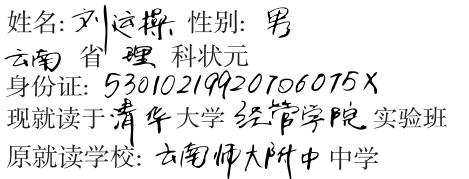 姓名: 刘运操 性别: 男
云南 省 理 科状元
身份证: 53010219920706075X
现就读于清华大学 经管学院 实验班
原就读学校: 云南师大附中 中学